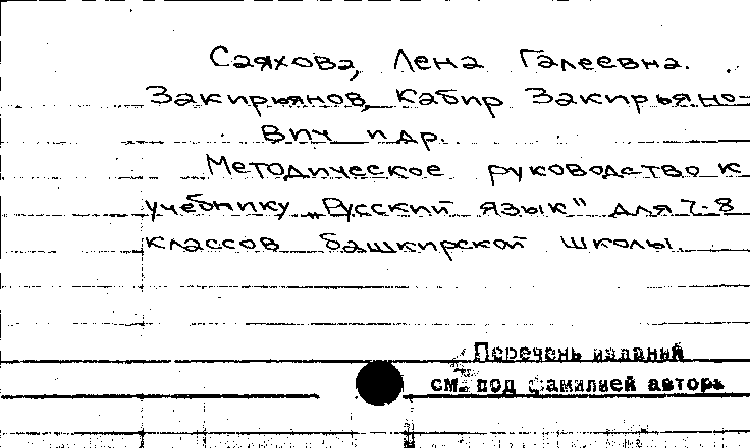 Саяхова, Лена Галеевна.
Закирьянов, Кабир Закирьяно-
вич и др.
Методическое руководство к
учебнику „Русский язык" для 7-8
классов башкирской школы.
Перечень изданий
см. под фамилией автора